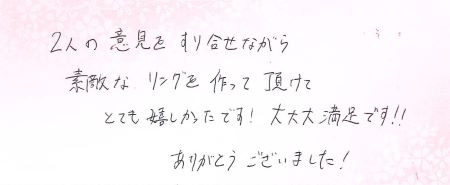 2人の意見をすり合せながら
素敵なリングを作って頂けて
とても嬉しかったです！大大大満足です!!
ありがとうございました！